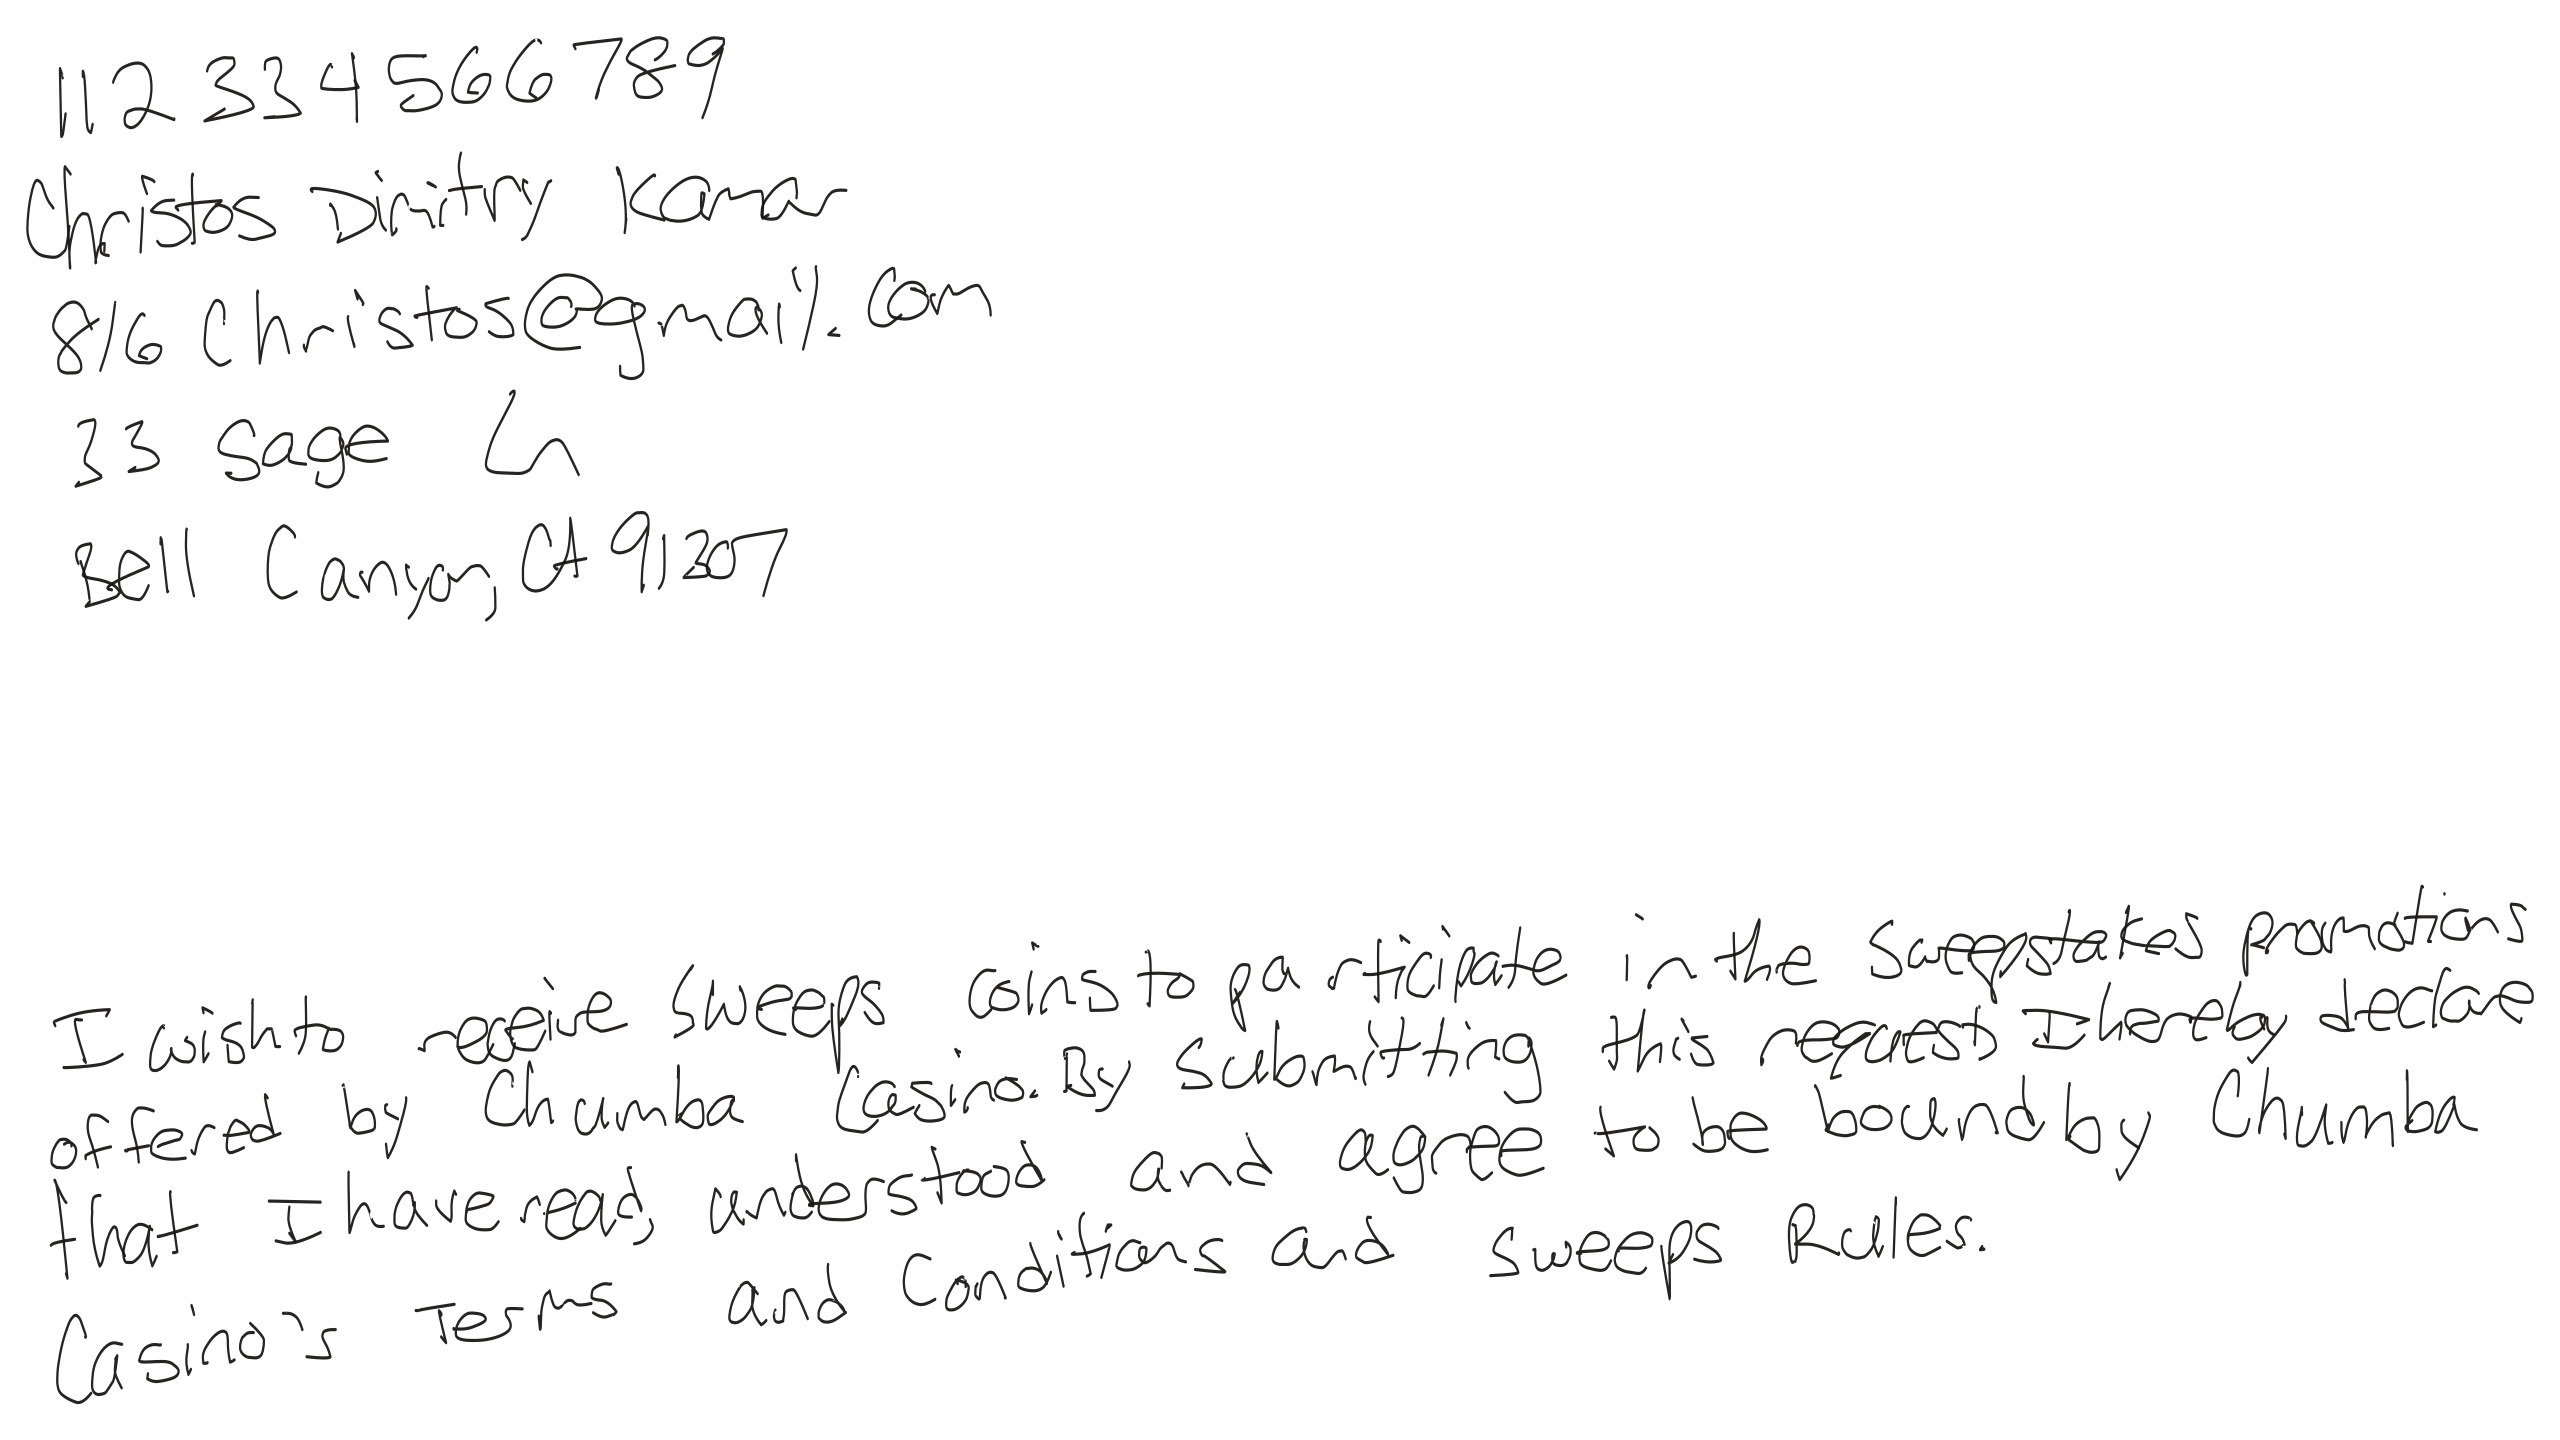 112334566789
Christos Dimitry Kamar
816Christos@gmail.com
33 Sage Ln
Bell Canyon, CA 91307
I wish to receive Sweeps coins to participate in the Sweepstakes promotions
offered by Chumba Casino. By submitting this request I hereby declare
that I have read, understood and agree to be bound by Chumba
Casino's Terms and Conditions and Sweeps Rules.